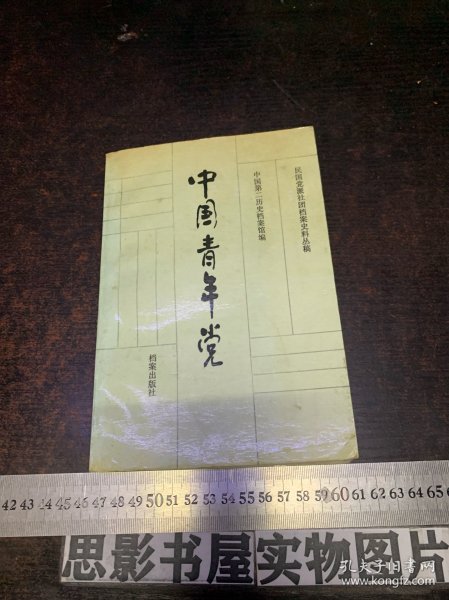 民国党派社团档案史料丛稿
中国第二历史档案馆编
中国青年党
档案出版社
42 43 44 45 46 47 48 49 50 51 52 53 54 55 56 57 58 59 60 61 62 63 64 65
思影书屋实物图片
孔夫子旧书网
kongfz.com